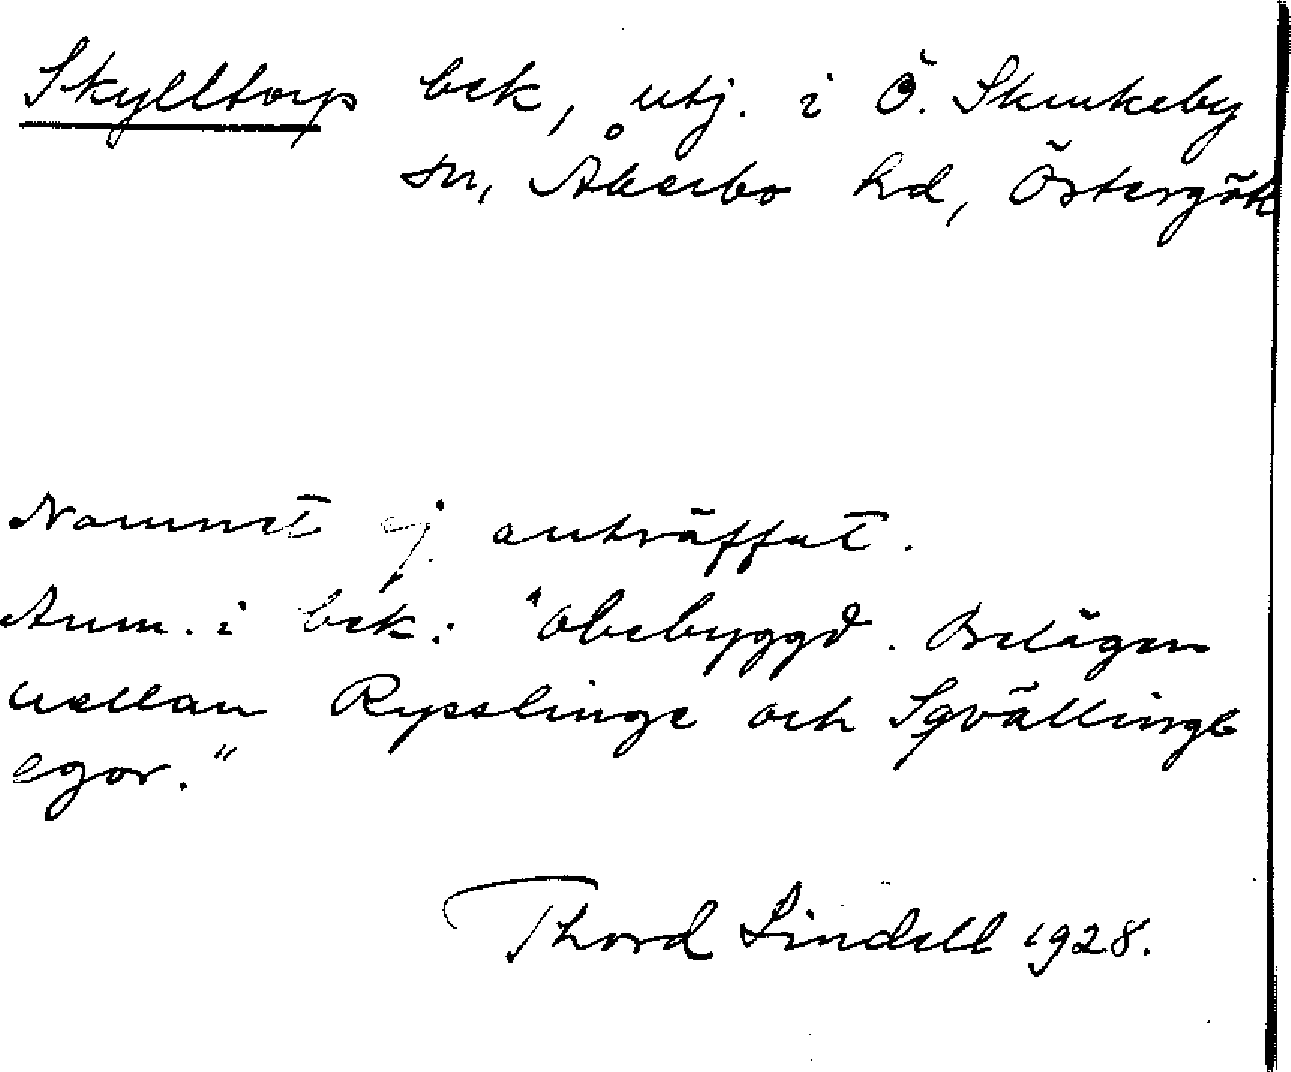 Skylltorp bek, utj. i Ö. Skrukeby
sn, Åkerbo hd, Östergötl
Namnet ej anträffat.
Anm. i bek: "Obebyggd. Belägen
mellan Rysslinge och Sqvällinge
egor."
Thord Lindell 1928.